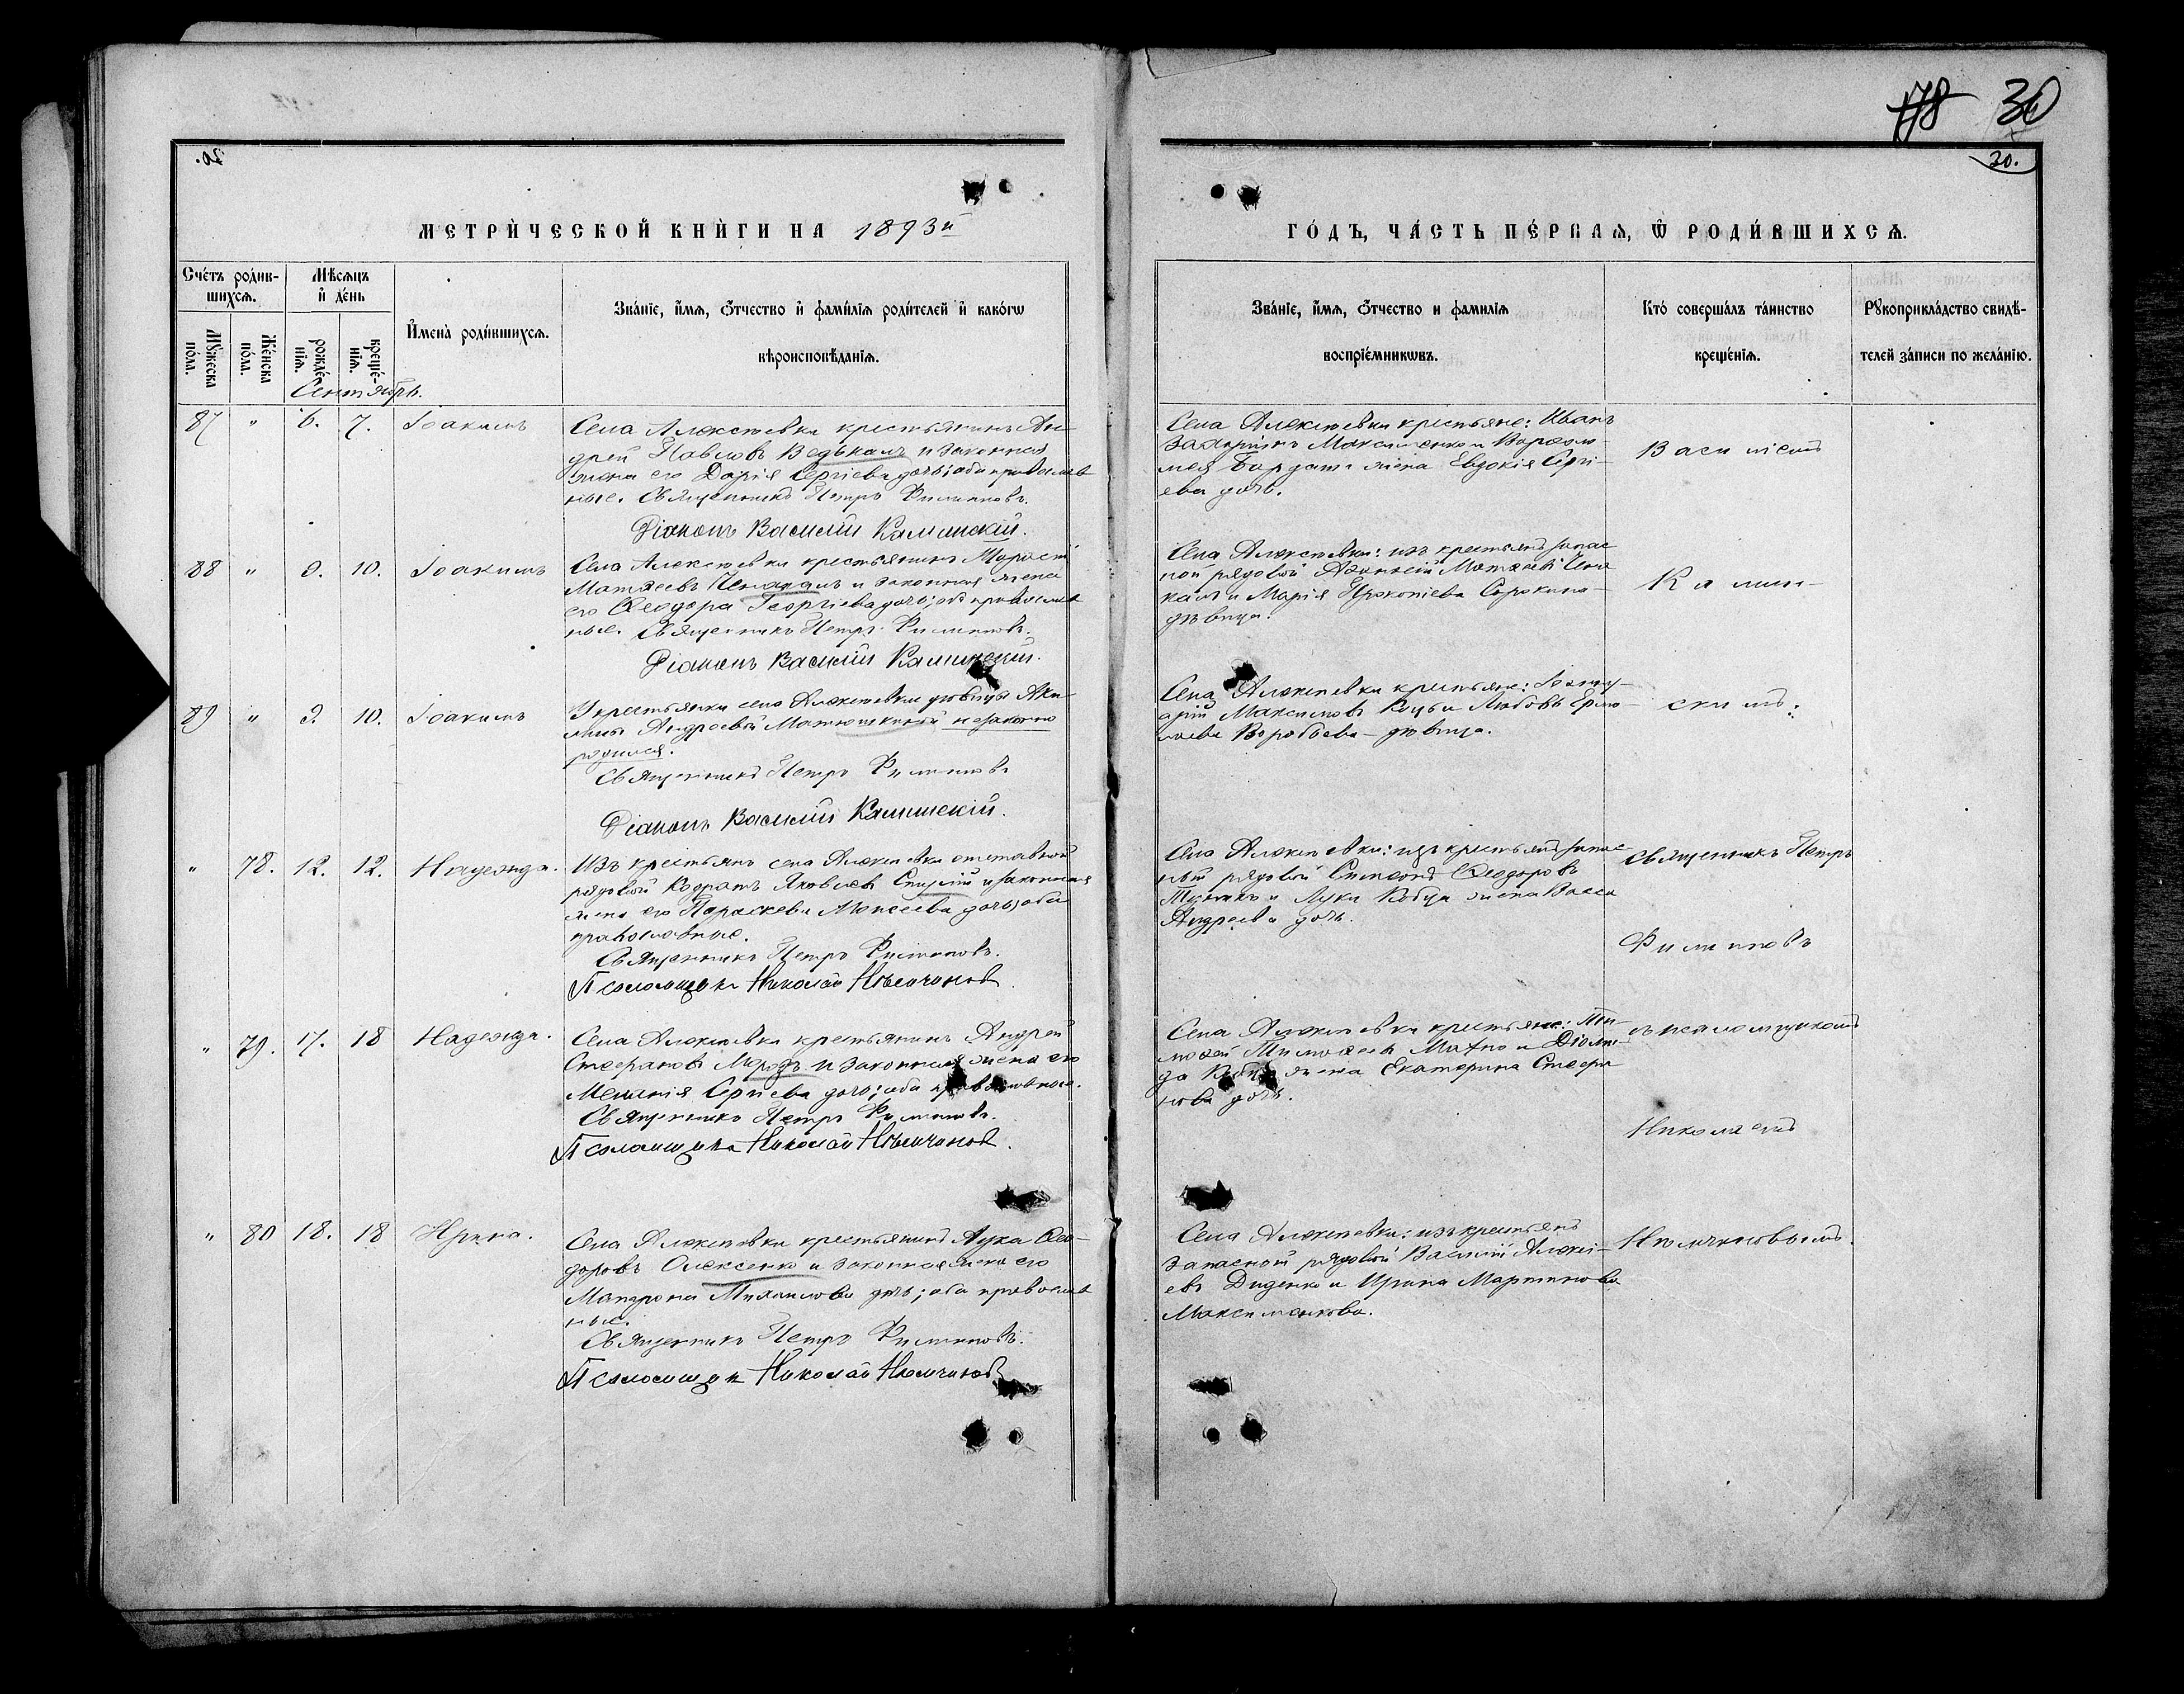 178 30
20.
МЕТРИ́ЧЕСКОЙ КНИ́ГИ НА 1893й
ГО́ДЪ, ЧА́СТЬ ПЕ́РВАѦ, Ѿ РОДИ́ВШИХСѦ.
Сче́тъ роди́в-
шихсѧ.
Мѣ́сѧцъ
и҆ де́нь
Мꙋ́жеска
по́ла.
Же́нска
по́ла.
рожде́-
нїѧ.
креще́-
нїѧ.
И҆мена̀ роди́вшихсѧ.
Зва́нїе, и҆́мѧ, ѻ҆́тчество и҆ фами́лїѧ роди́телей и҆ како́гѡ
вѣроисповѣ́данїѧ.
Зва́нїе, и҆́мѧ, ѻ҆́тчество и фамилїѧ
воспрїе́мникѡвъ.
Кто̀ соверша́лъ та́инство
креще́нїѧ.
Рꙋкоприкла́дство свидѣ́-
телей за́писи по жела́нїю.
Сентябрь.
87 " 6. 7. Іоакимъ
Села Алексѣевки крестьянинъ Ан-
дрей Павловъ Ведькалъ и законная
жена его Дарія Сергіева дочь; оба православ
ные. Священникъ Петръ Филиповъ.
Діаконъ Василій Калинскій.
Села Алексѣевки крестьяне: Иванъ
Захаріинъ Максименко и Варѳоло-
мея жена Евдокія Сергі-
ева дочь.
Василіемъ
88 " 9. 10. Іоакимъ
Села Алексѣевки крестьянинъ
Матѳеевъ Чекакалъ и законная жена
его Ѳеодора Георгіева дочь; оба православ
ные. Священникъ Петръ Филиповъ.
Діаконъ Василій Калинскій.
Села Алексѣевки: изъ крестьянъ запас
ной рядовой Матѳеевъ Чека
калъ и Марія Прокопіева Сорокина-
дѣвица.
Калин-
89 " 9. 10. Іоакимъ
У крестьянки села Алексѣевки дѣвицы Аки-
лины Андреевой Матюшкиной незаконно
родился.
Священникъ Петръ Филиповъ
Діаконъ Василій Калинскій.
Села Алексѣевки крестьяне: Іанну-
арій Максимовъ Коцъ и Любовь Ермо-
лаева Воробьева - дѣвица.
скимъ:
" 78. 12. 12. Надежда.
Изъ крестьянъ села Алексѣевки отставной
рядовой Кодратъ Яковлевъ и законная
жена его Параскева Моисеева дочь; оба
православные.
Священникъ Петръ Филиповъ.
Псаломщикъ Николай Нѣмчиновъ.
Села Алексѣевки: изъ крестьянъ запас
ный рядовой Симеонъ Ѳеодоровъ
и Луки Кобца жена Васса
Андреева дочь.
Священникъ Петръ
Филиповъ
" 79. 17. 18 Надежда.
Села Алексѣевки крестьянинъ Андрей
Стефановъ Морозъ и законная жена его
Меланія Сергіева дочь; оба православные.
Священникъ Петръ Филиповъ.
Псаломщикъ Николай Нѣмчиновъ.
Села Алексѣевки крестьяне: Ти-
моѳей Тимоѳеевъ Махно и Діоми-
да жена Екатерина Стефа
нова дочь.
съ псаломщикомъ
Николаемъ
" 80 18. 18 Ирина.
Села Алексѣевки крестьянинъ Лука Ѳео-
доровъ Олексенко и законная жена его
Матрона Михаилова дочь; оба православ
ные.
Священникъ Петръ Филиповъ.
Псаломщикъ Николай Нѣмчиновъ
Села Алексѣевки: изъ крестьянъ
запасной рядовой Василій Алексі-
евъ Диденко и Ирина Мартинова
Максименкова.
Нѣмчиновымъ.